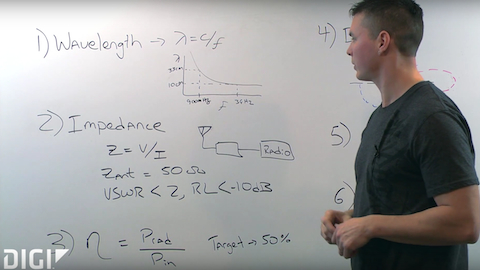 1) Wavelength → λ = c/f
λ
10cm
f
3GHz
2) Impedance
Z = V/I
Radio
Zant = 50Ω
VSWR < 2, RL < -10dB
3) η = Prad/Pin
Target → 50%
4)
5)
6)
DIGI